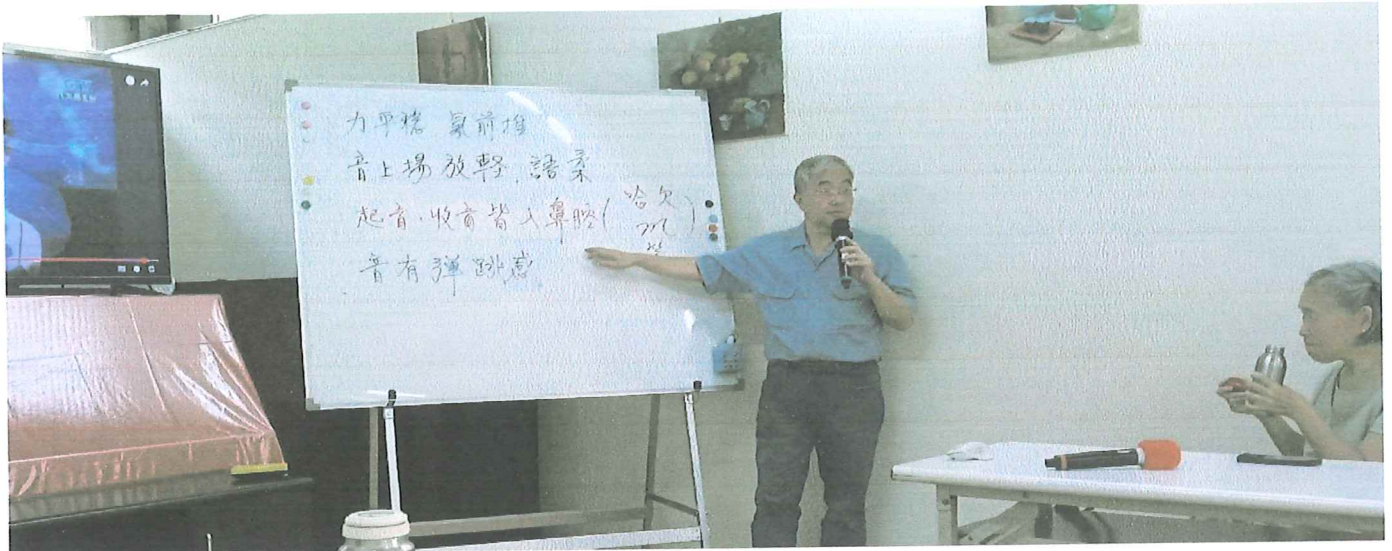 力平穩 氣前推
音上揚放輕，語柔
起音·收音皆入鼻腔(哈欠)
音有彈跳感